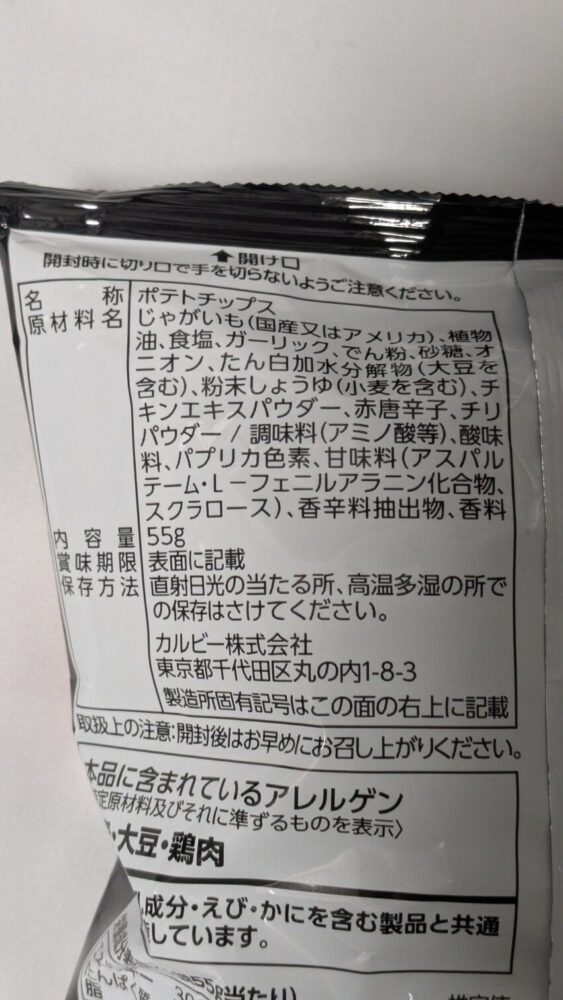 開け口
開封時に切り口で手を切らないようご注意ください。
名称 ポテトチップス
原材料名 じゃがいも(国産又はアメリカ)、植物
油、食塩、ガーリック、でん粉、砂糖、オ
ニオン、たん白加水分解物(大豆を
含む)、粉末しょうゆ(小麦を含む)、チ
キンエキスパウダー、赤唐辛子、チリ
パウダー / 調味料(アミノ酸等)、酸味
料、パプリカ色素、甘味料(アスパル
テーム・L-フェニルアラニン化合物、
スクラロース)、香辛料抽出物、香料
内容量 55g
賞味期限 表面に記載
保存方法 直射日光の当たる所、高温多湿の所で
の保存はさけてください。
カルビー株式会社
東京都千代田区丸の内1-8-3
製造所固有記号はこの面の右上に記載
取扱上の注意:開封後はお早めにお召し上がりください。
本品に含まれているアレルゲン
定原材料及びそれに準ずるものを表示〉
・大豆・鶏肉
成分・えび・かにを含む製品と共通
しています。
当たり)
たんぱく
脂
推定値